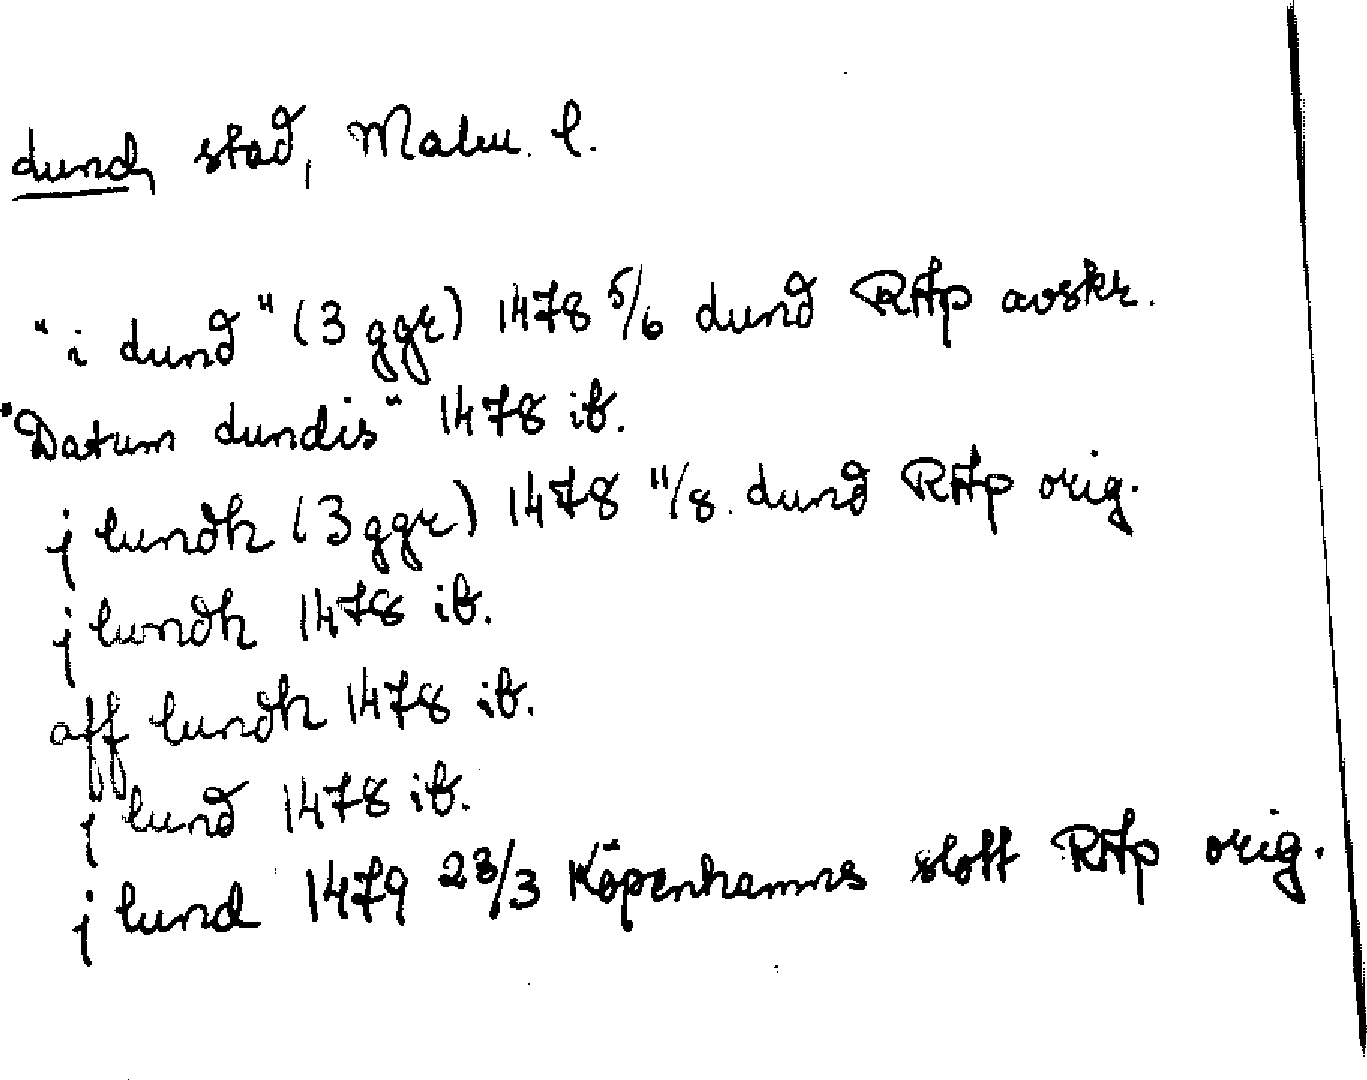 Lund, stad, Malm. l.
"i Lund" (3 ggr) 1478 5/6 Lund RAp avskr.
"Datum Lundis" 1478 ib.
j lundh (3 ggr) 1478 11/8. Lund RAp orig.
j lundh 1478 ib.
aff lundh 1478 ib.
j lund 1478 ib.
j lund 1479 23/3 Köpenhamns slott RAp orig.